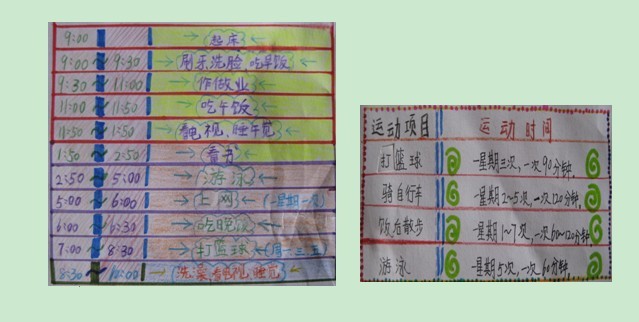 9:00 → 起床 ←
9:00 ~ 9:30 → 刷牙洗脸、吃早饭 ←
9:30 ~ 11:00 → 作做业 ←
11:00 ~ 11:50 → 吃午饭 ←
11:50 ~ 1:50 → 看电视、睡午觉 ←
1:50 ~ 2:50 → 看书 ←
2:50 ~ 5:00 → 游泳 ←
5:00 ~ 6:00 → 上网 ← (一星期一次)
6:00 ~ 6:30 → 吃晚饭 ←
7:00 ~ 8:30 → 打篮球 ← (周一三五)
8:30 ~ 10:00 → 洗澡,看电视,睡觉 ←
运动项目 运动时间
打篮球 一星期三次,一次90分钟,
骑自行车 一星期2~5次,一次120分钟,
饭后散步 一星期1~7次,一次60~120分钟
游泳 一星期5次,一次60分钟,